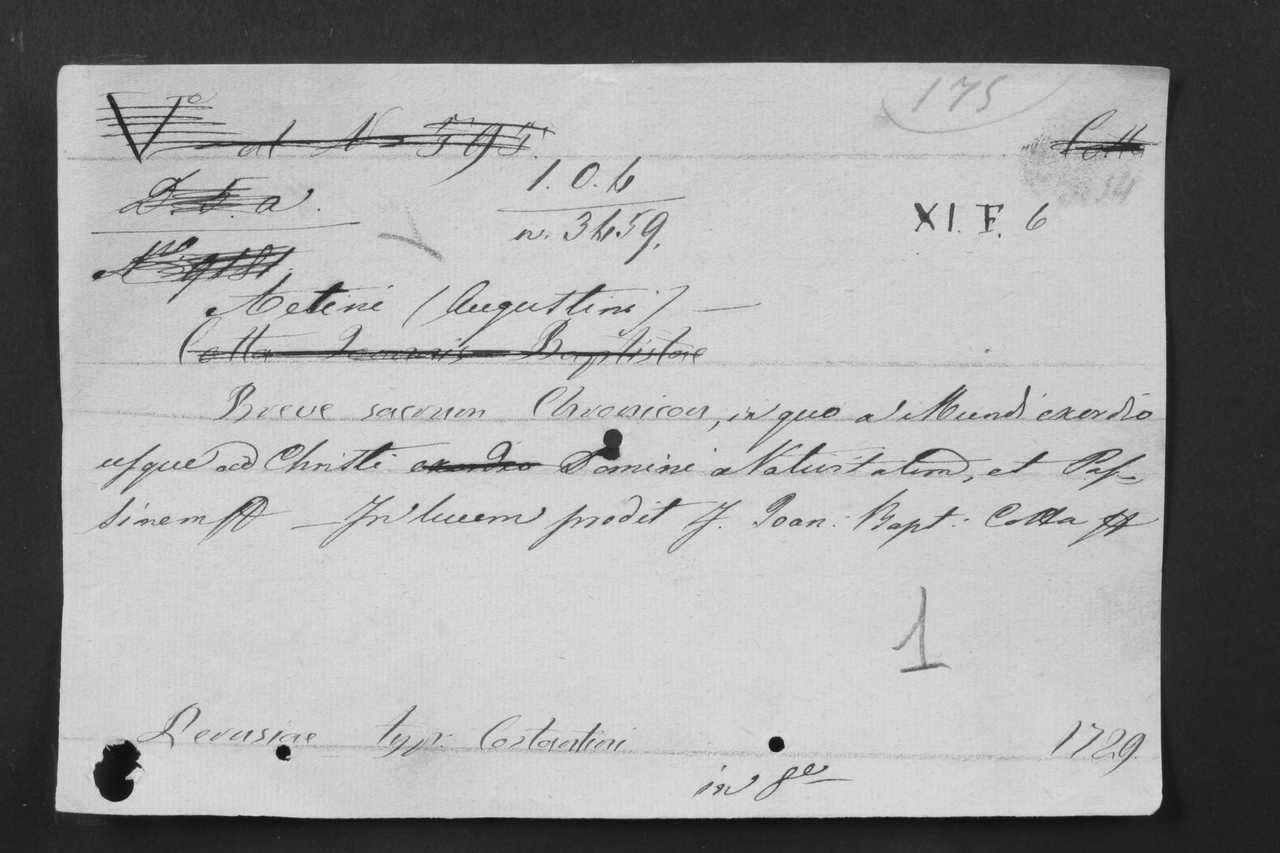 175
V.to al N 595.
Cotta
34
D. 5. a.
I. O. 6
n. 3659.
XI. F. 6
N.ro
Aeteni (Augustini) —
Cotta Joannis Baptistae
Breve sacrum Chronicon, in quo a Mundi exordio
usque ad Christi exordio Domini Natus et Pas-
sinem ff — In lucem prodit J. Joan: Bapt: Cotta ff
1
Perusiae typ: Costantini
1729.
in 8.vo